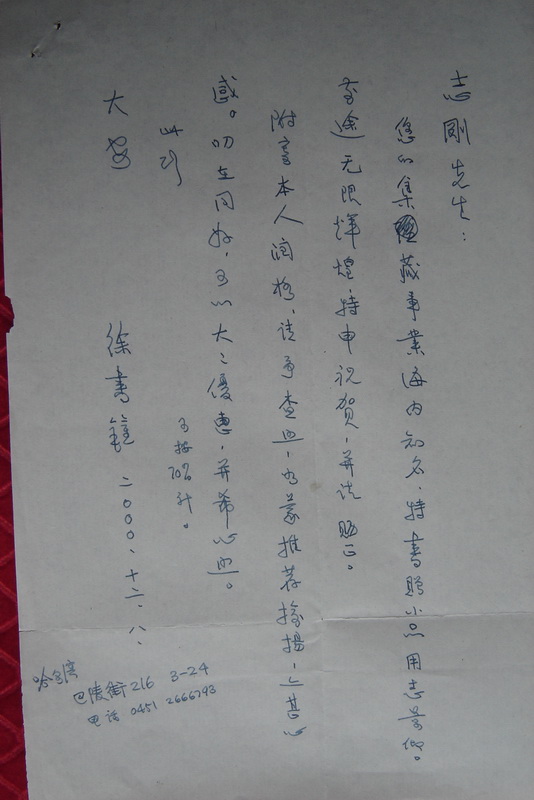 志刚先生：
您的集藏事业海内知名，特书赠小品用志景仰。
无限辉煌，特申祝贺，并请赐正。
附寄本人润格，请予查照，如蒙推荐揄扬，甚
感。如在同好，可以大大优惠，并希心照。
可按70%计。
此致
大安
徐书 二〇〇〇、十二、八、
哈尔滨
巴陵街216 3-24
电话 0451 2666793